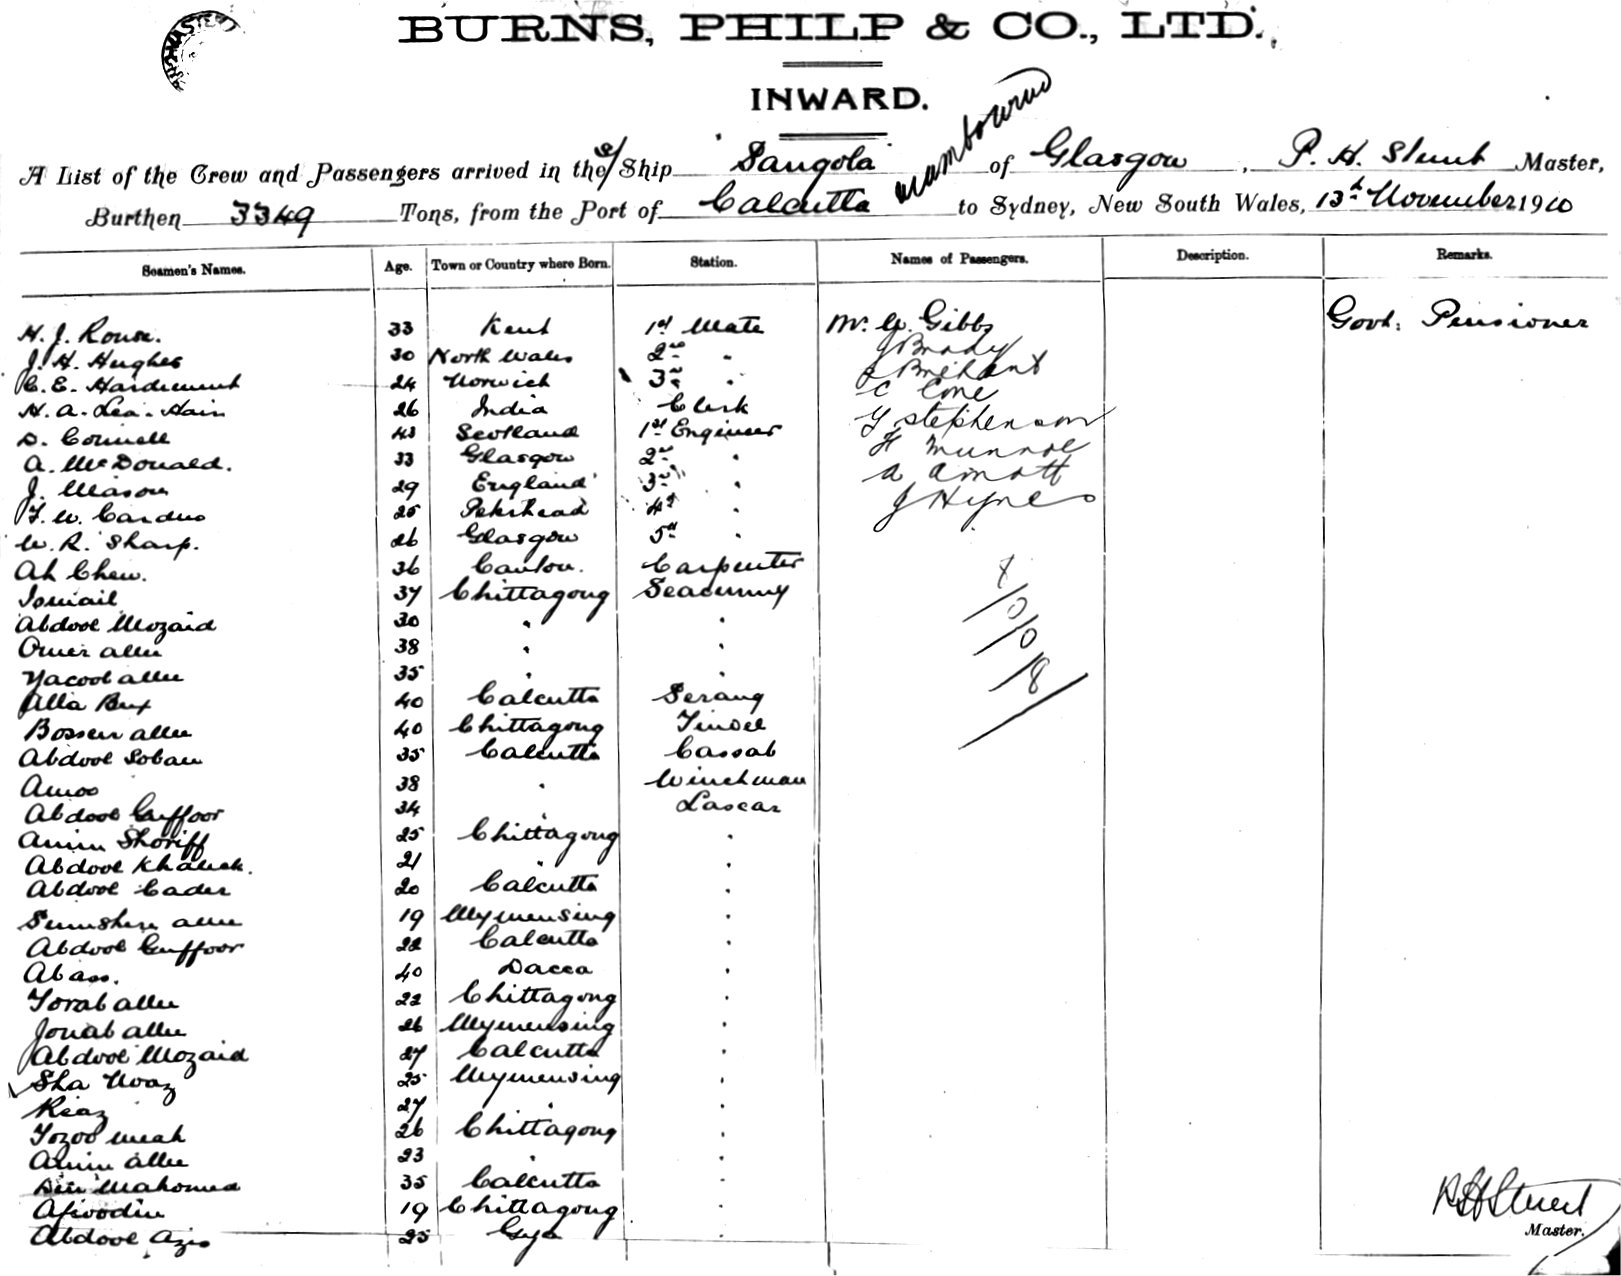 BURNS, PHILP & CO., LTD.
INWARD.
A List of the Crew and Passengers arrived in the s/ Ship "Sangola" of Glasgow, P. H. Master,
Burthen 3349 Tons, from the Port of Calcutta to Sydney, New South Wales, 13th November 1910
Seamen's Names. Age. Town or Country where Born. Station. Names of Passengers. Description. Remarks.
H. J. Rouse. 33 Kent 1st Mate Mr. W. Gibbs Govt. Pensioner
J. H. Hughes 30 North Wales 2nd " J Brady
C. E. Hardement 24 Norwich 3rd "
H. A. Lea-Hair 26 India Clerk C Cone
D. Connell 43 Scotland 1st Engineer Y Stephenson
A. McDonald. 33 Glasgow 2nd " H Munroe
J. Mason 29 England 3rd " A Amott
F. W. Carduo 25 4th " J Hynes
W. R. Sharp. 26 Glasgow 5th "
Ah Chew. 36 Canton. Carpenter
Ismail 37 Chittagong Seacunny
Abdool Mozaid 30 " "
Omer allee 38 " "
Yacoob allee 35 " "
Alla Bux 40 Calcutta Serang
Bosser allee 40 Chittagong Tindel
Abdool Soban 35 Calcutta Cassab
Amoo 38 " Winchman
Abdool Guffoor 34 " Lascar
Amin Shoriff 25 Chittagong "
Abdool Khaleck. 21 " "
Abdool Cader 20 Calcutta "
Sumsher allee 19 Mymensing "
Abdool Guffoor 22 Calcutta "
Abass. 40 Dacca "
Torab allee 22 Chittagong "
Jonab allee 26 Mymensing "
Abdool Mozaid 27 Calcutta "
Sha Noaz 25 Mymensing "
Reaz 27 " "
Tozoo meah 26 Chittagong "
Amin allee 23 " "
Mahomed 35 Calcutta "
Afioodin 19 Chittagong "
Abdool Azis 25 Gya "
Master.